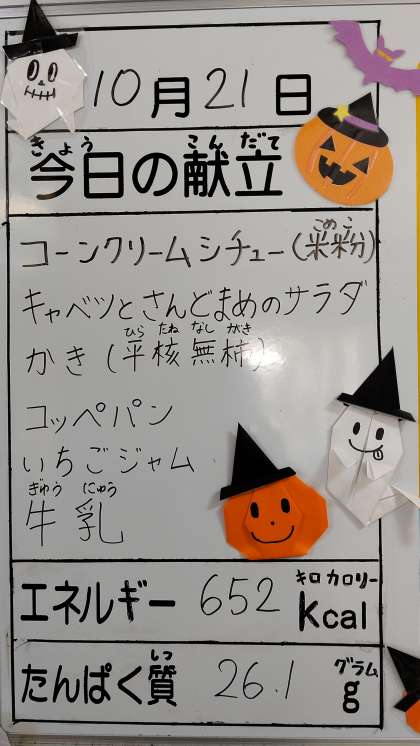 10月21日
きょう こんだて
今日の献立
コーンクリームシチュー(米粉)
こめ こ
キャベツとさんどまめのサラダ
ひら たね なし がき
かき(平核無柿)
コッペパン
いちごジャム
ぎゅう にゅう
牛乳
エネルギー 652 kcal
キロ カロリー
たんぱく質 26.1 g
しつ
グラム